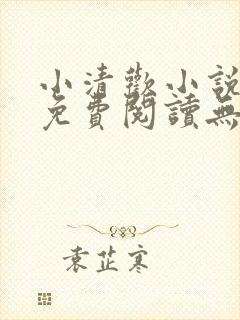 小清歡小說
免費閱讀無
袁芷寒